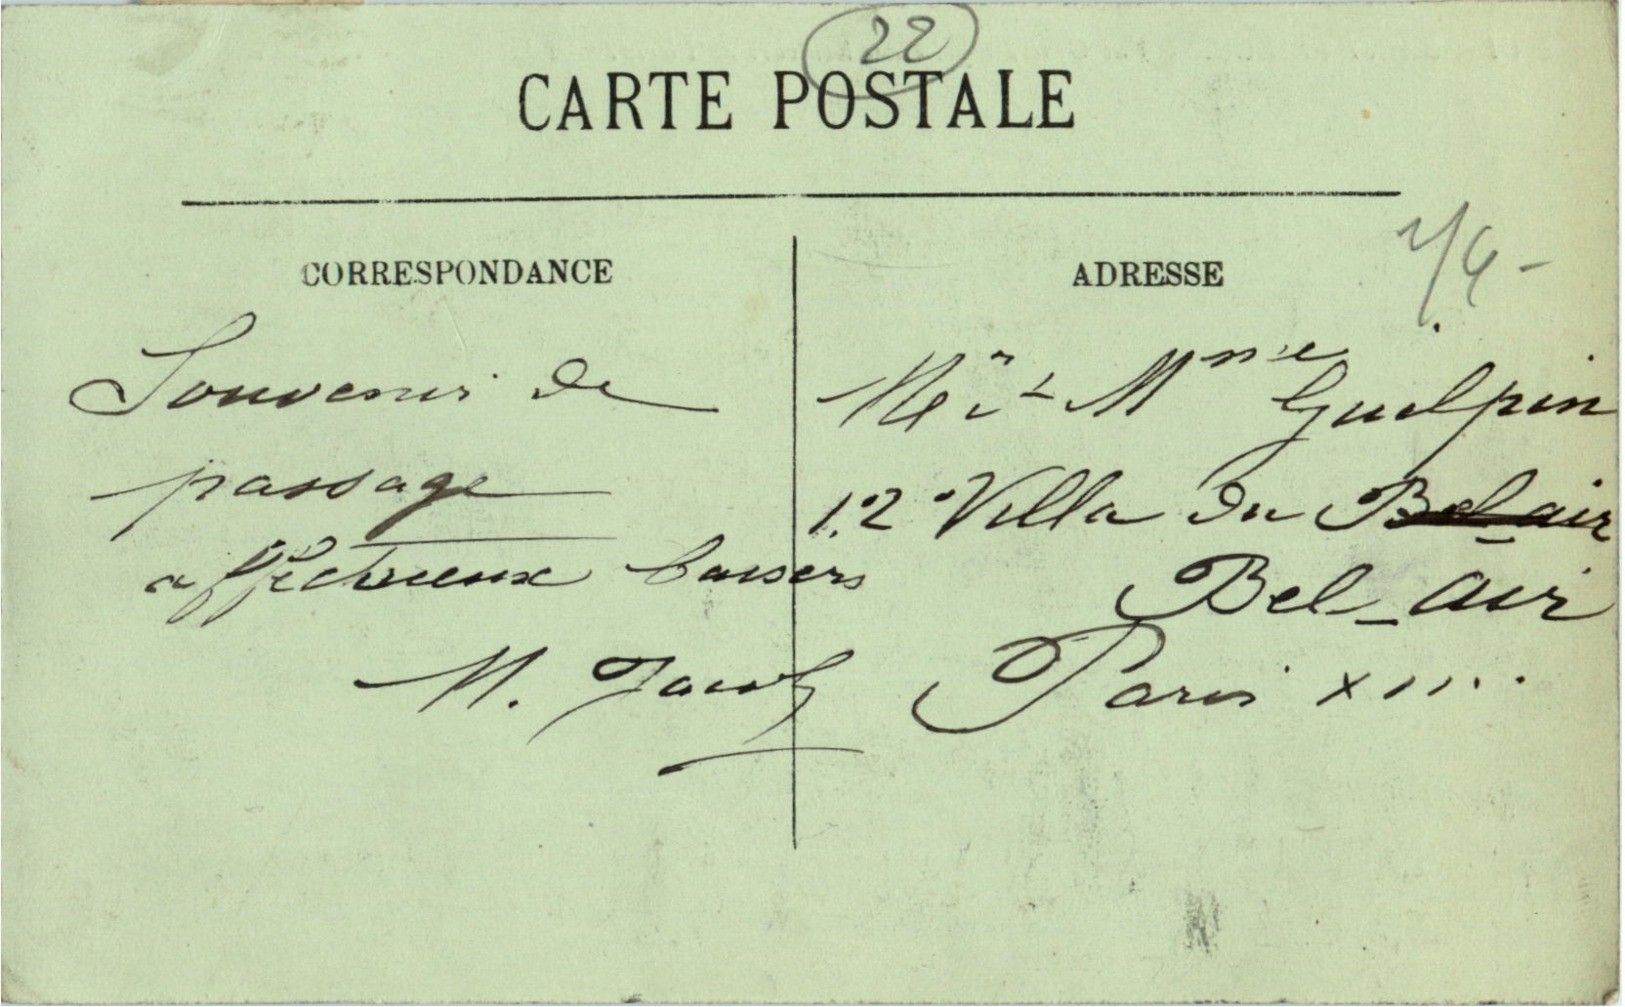 22
CARTE POSTALE
CORRESPONDANCE
Souvenir de
passage
affectueux baisers
M. Jacob
ADRESSE
Mr et Mme Guelpin
12 Villa du Bel-air
Bel-air
Paris